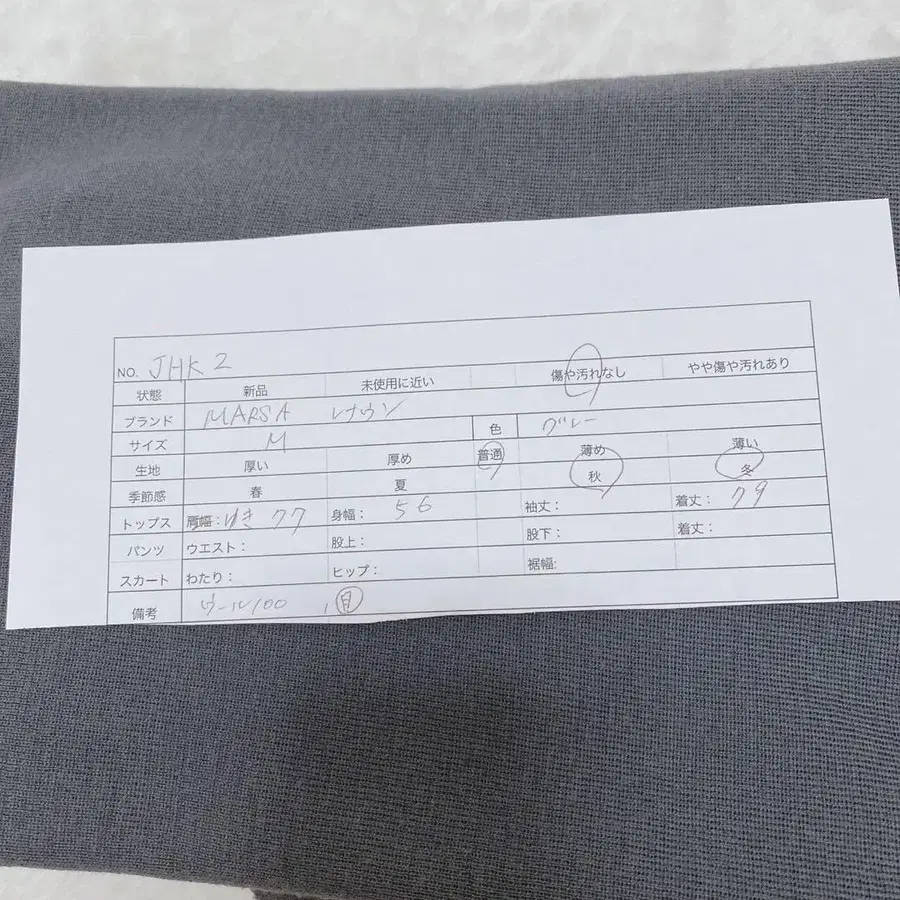 NO. JHK2
状態 新品 未使用に近い 傷や汚れなし やや傷や汚れあり
ブランド MARSA レナウン
サイズ M 色 グレー
生地 厚い 厚め 普通 薄め 薄い
季節感 春 夏 秋 冬
トップス 肩幅：ゆき 77 身幅： 56 袖丈： 着丈： 79
パンツ ウエスト： 股上： 股下： 着丈：
スカート わたり： ヒップ： 裾幅:
備考 ウール100